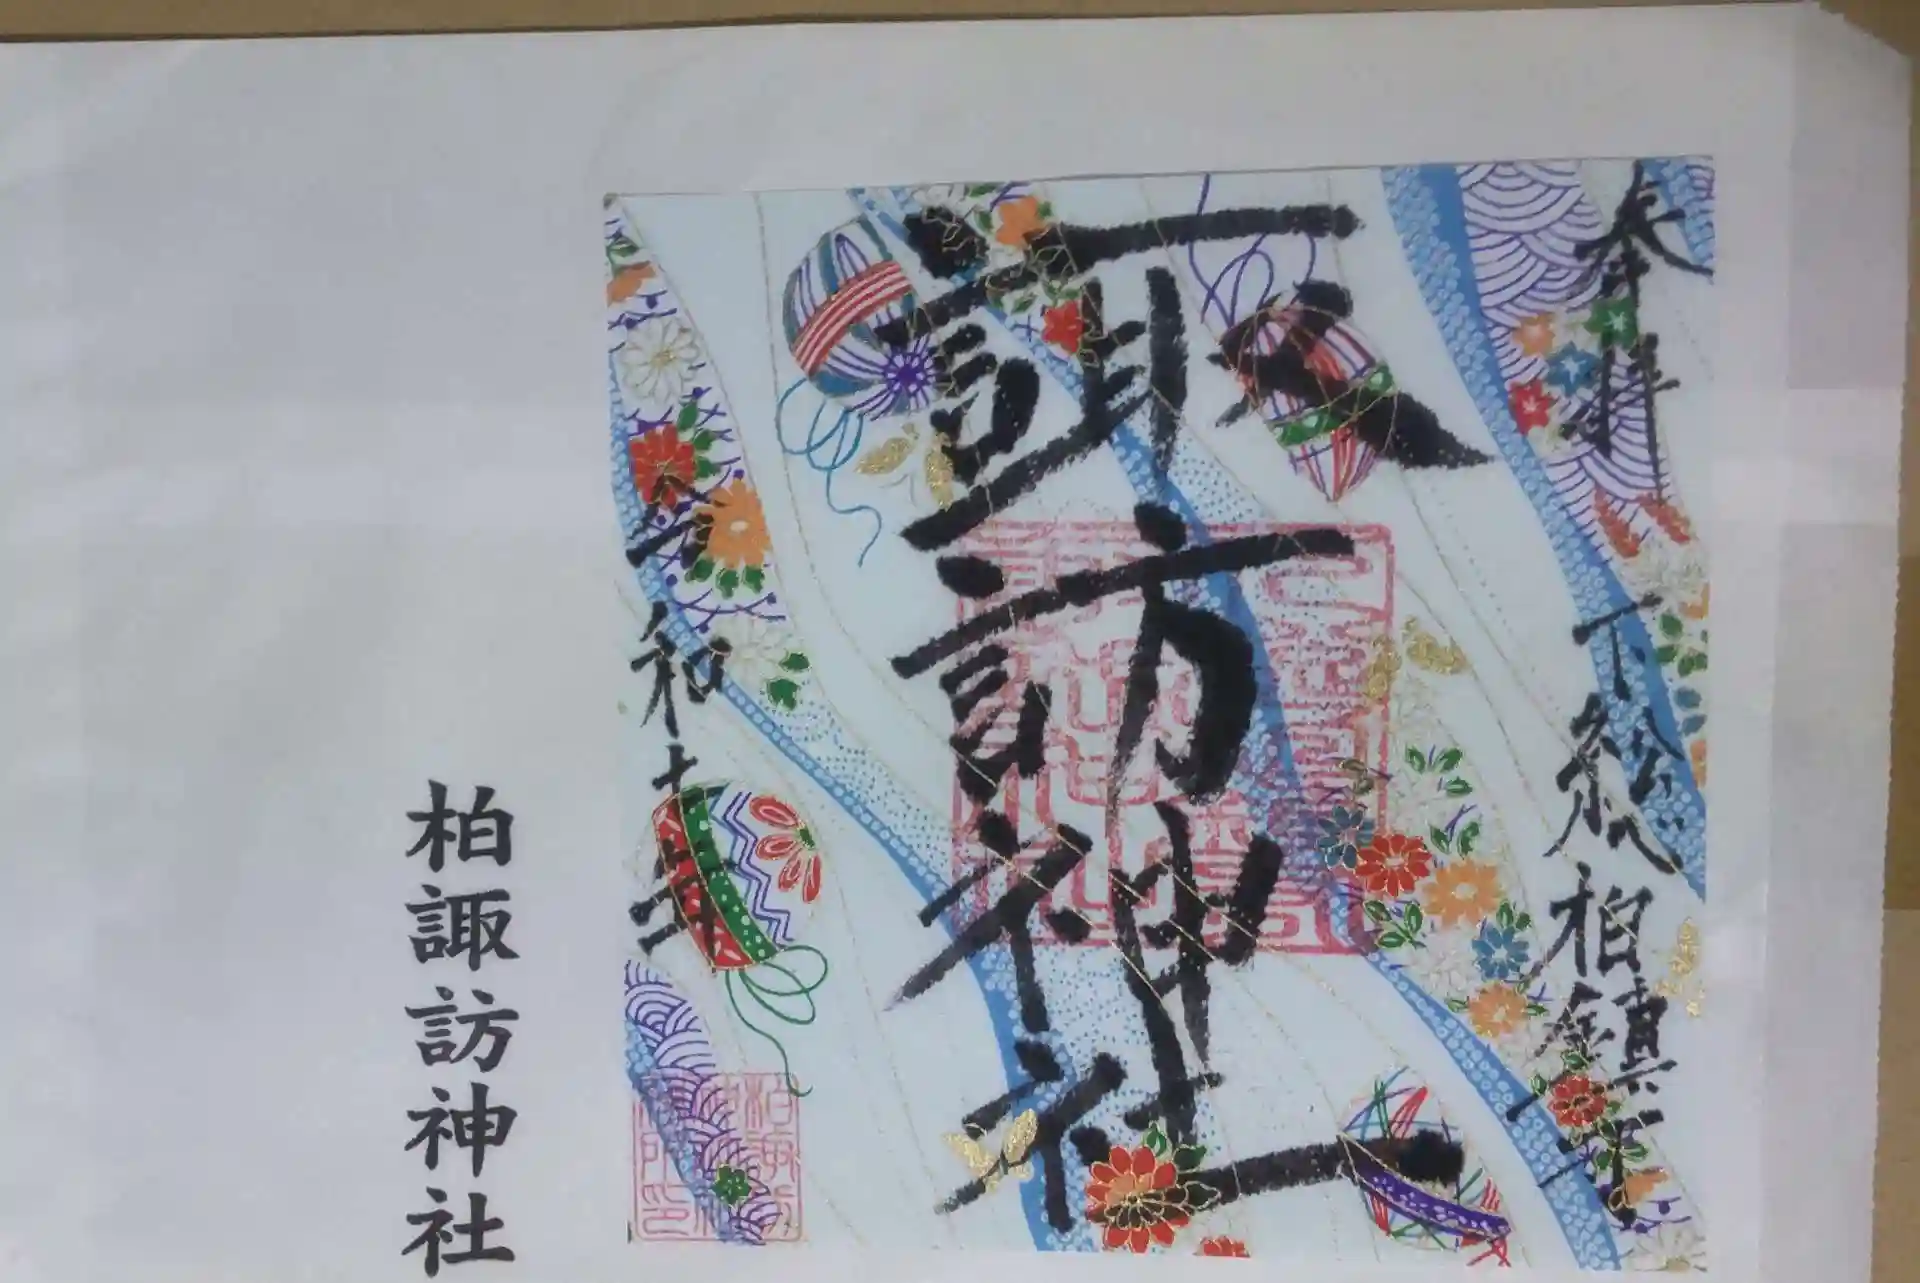 奉拝 下総柏鎮守
諏訪神社
令和 年
柏諏訪神社